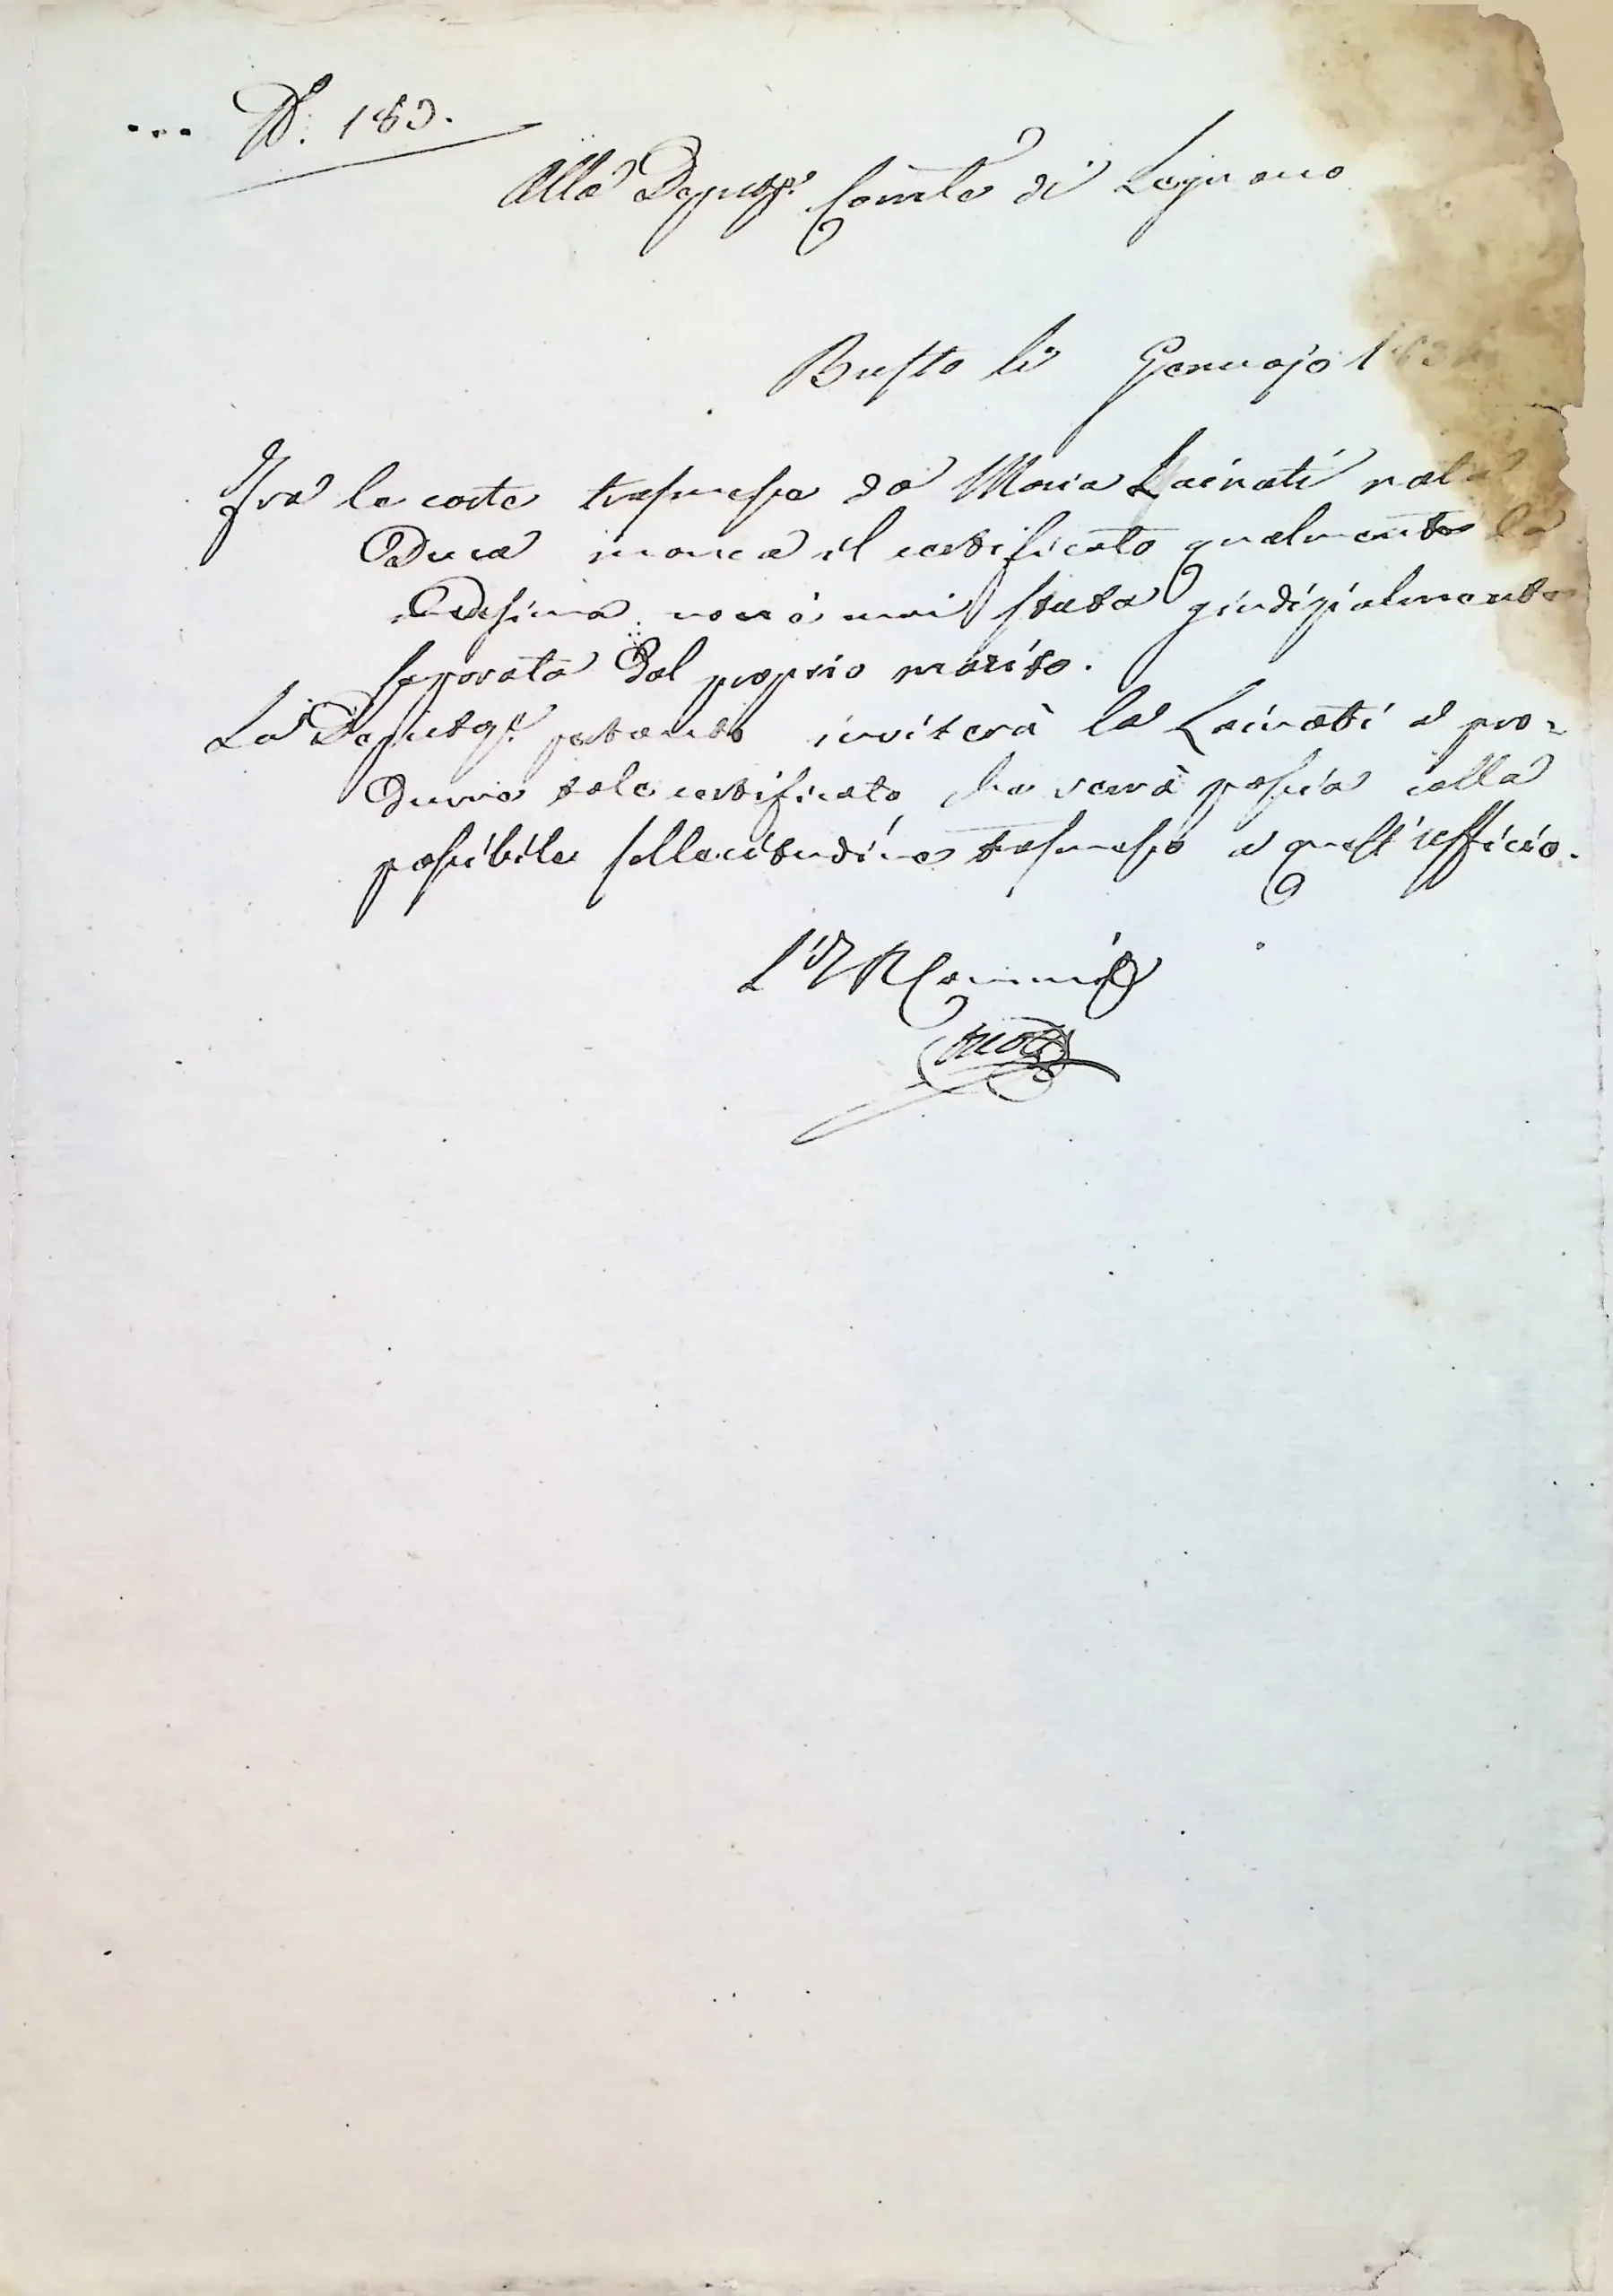 N. 183.
Alla Deputaz.e Com.le di Legnano
Busto li Gennajo
Fra le carte trasmesse da Maria Lainati nata
Duca manca il certificato qualmente la
Medesima non è mai stata giudizialmente
separata dal proprio marito.
La Deputaz.e pertanto inviterà la Lainati a pro-
durre tale certificato che verrà poscia colla
possibile sollecitudine trasmesso a quest'ufficio.
L'I R Commis